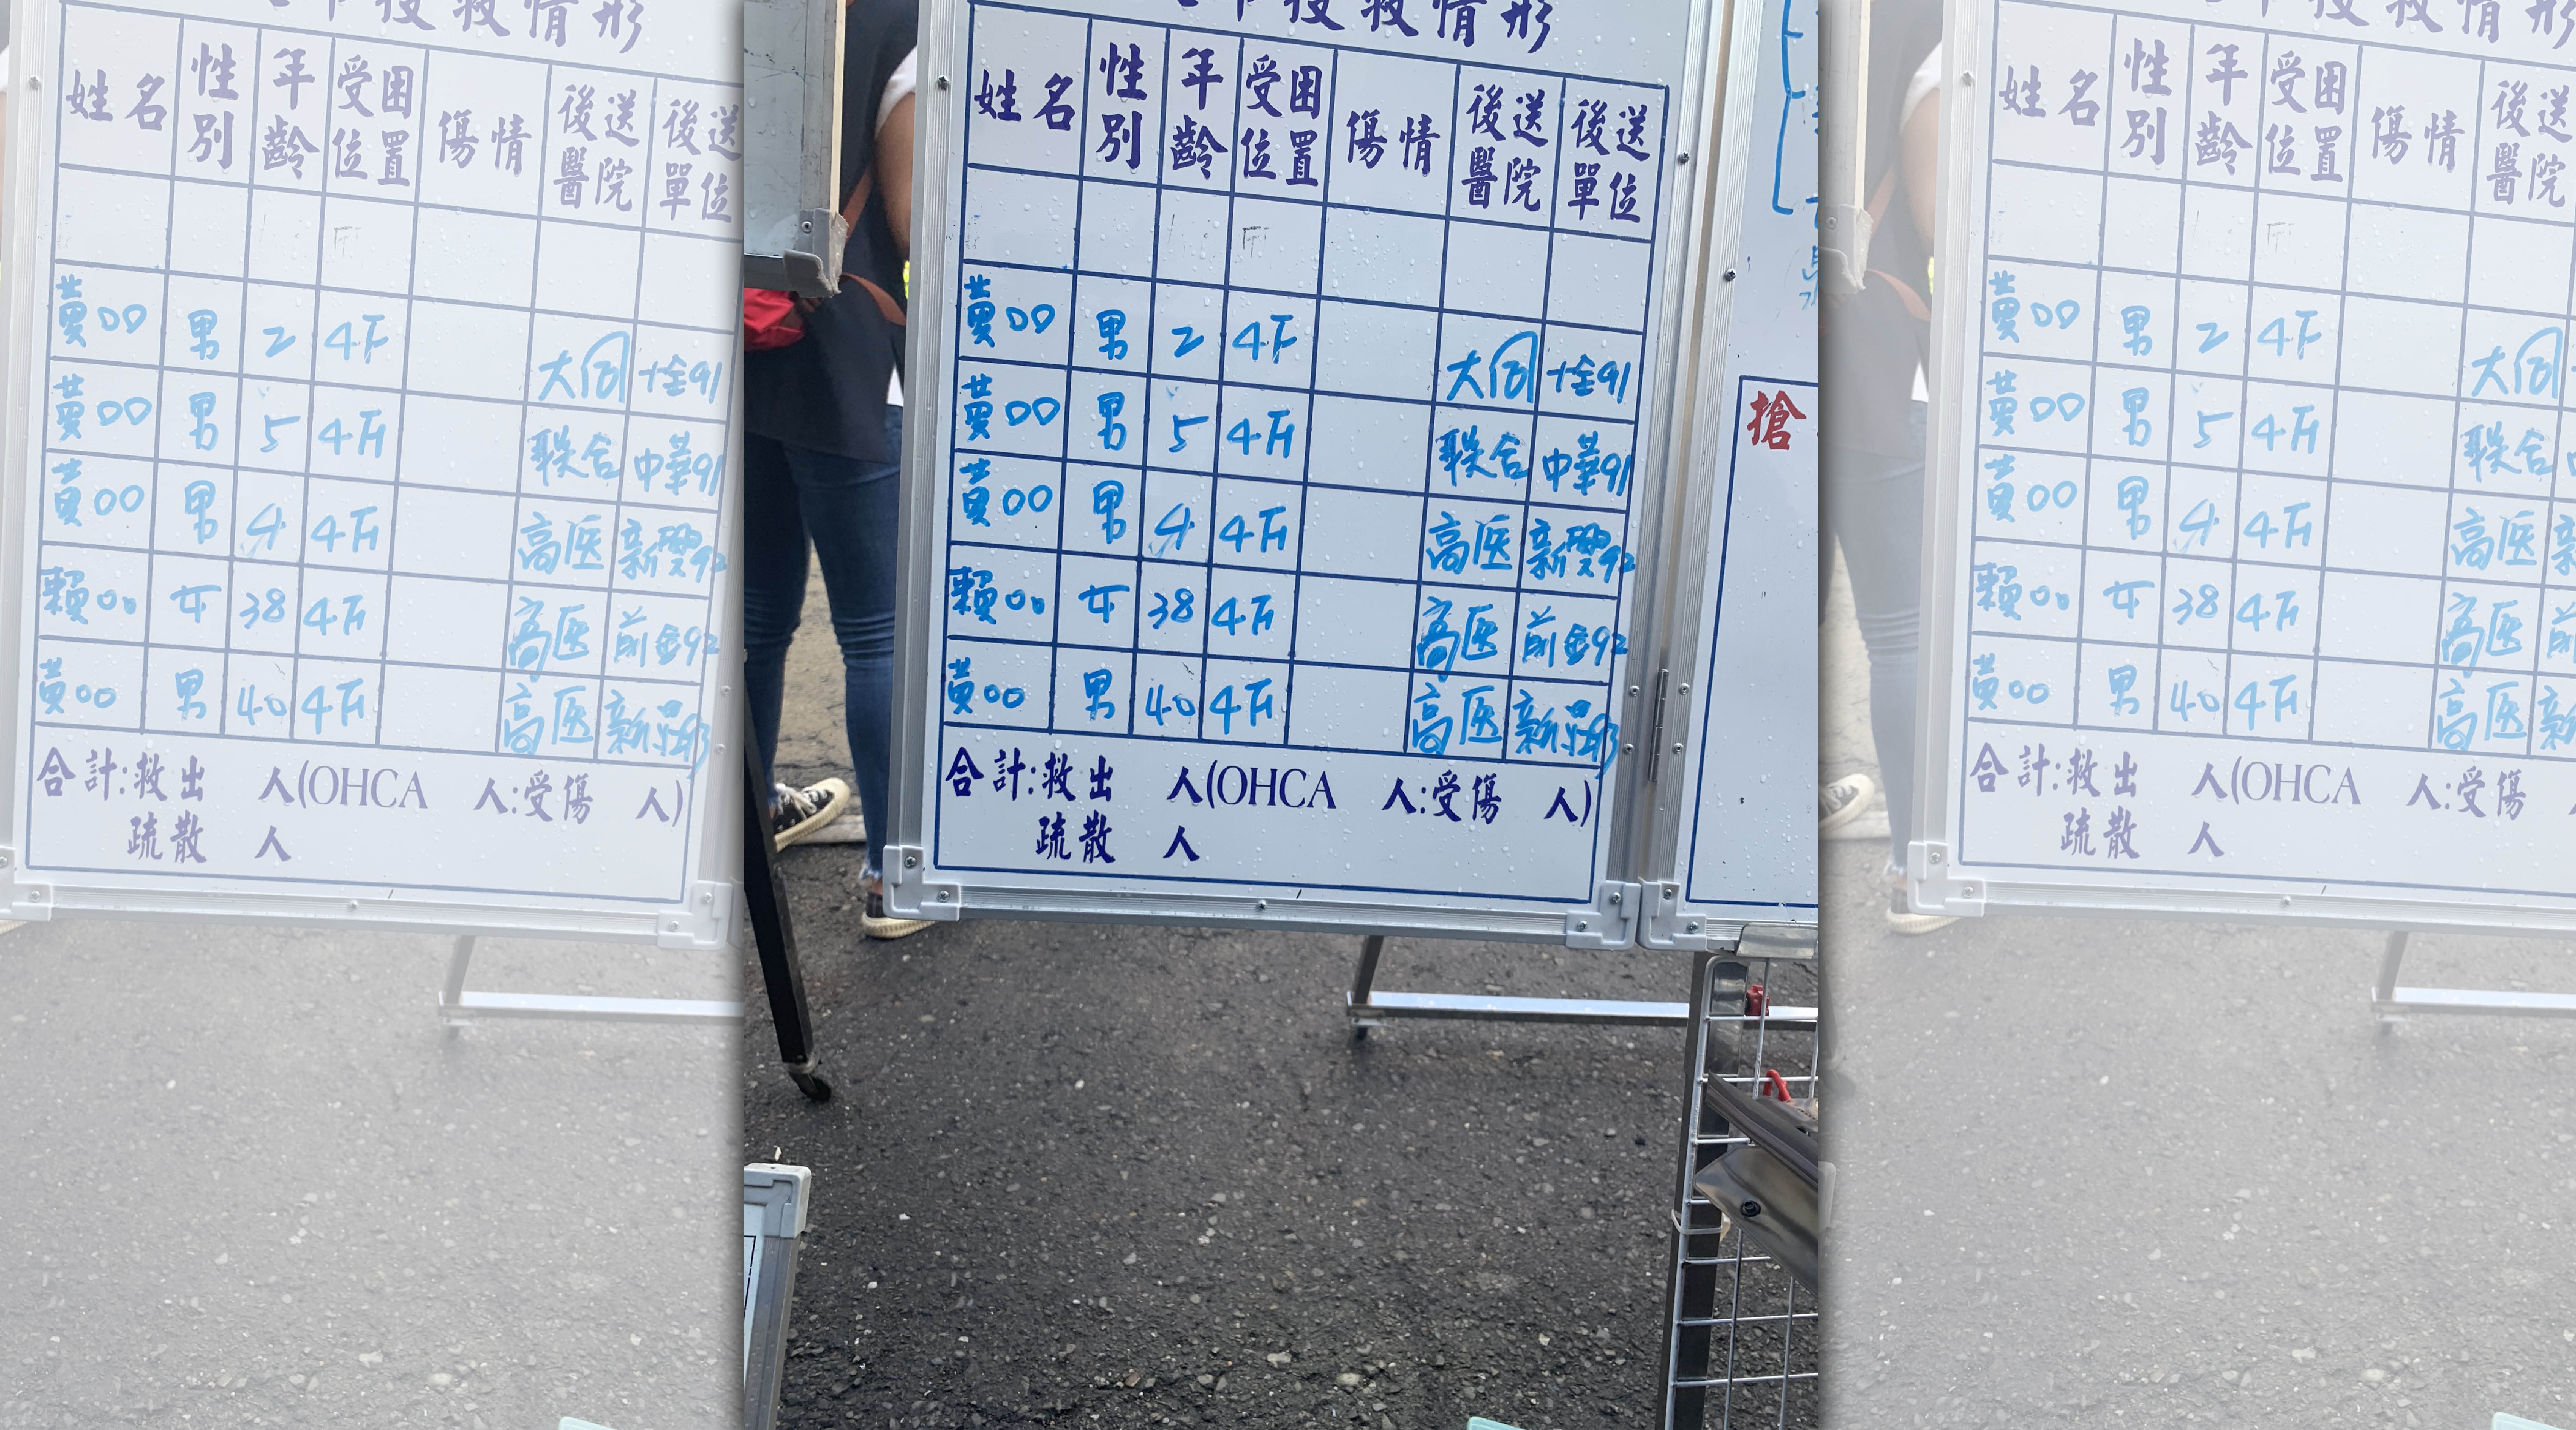 搜救情形
姓名 性別 年齡 受困位置 傷情 後送醫院 後送單位
黃00 男 2 4F 大同 十全91
黃00 男 5 4F 联合 中華91
黃00 男 4 4F 高医 新興92
賴00 女 38 4F 高医 前金92
黃00 男 40 4F 高医 新莊93
合計:救出 人(OHCA 人:受傷 人)
疏散 人
搶